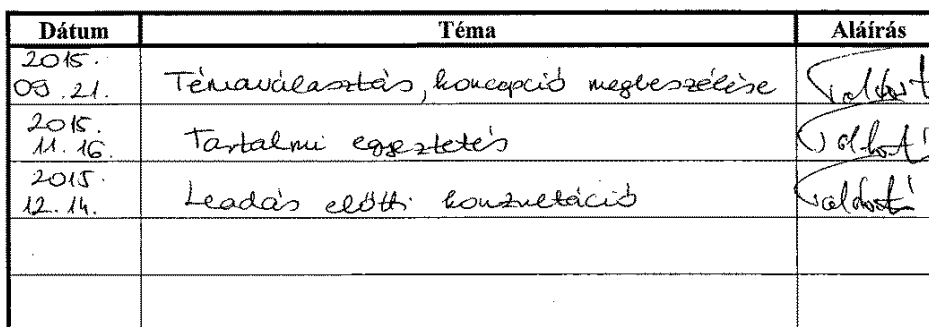 Dátum Téma Aláírás
2015.
09.21. Témaválasztás, koncepció megbeszélése
2015.
11.16. Tartalmi egyeztetés
2015.
12.14. Leadás előtti konzultáció